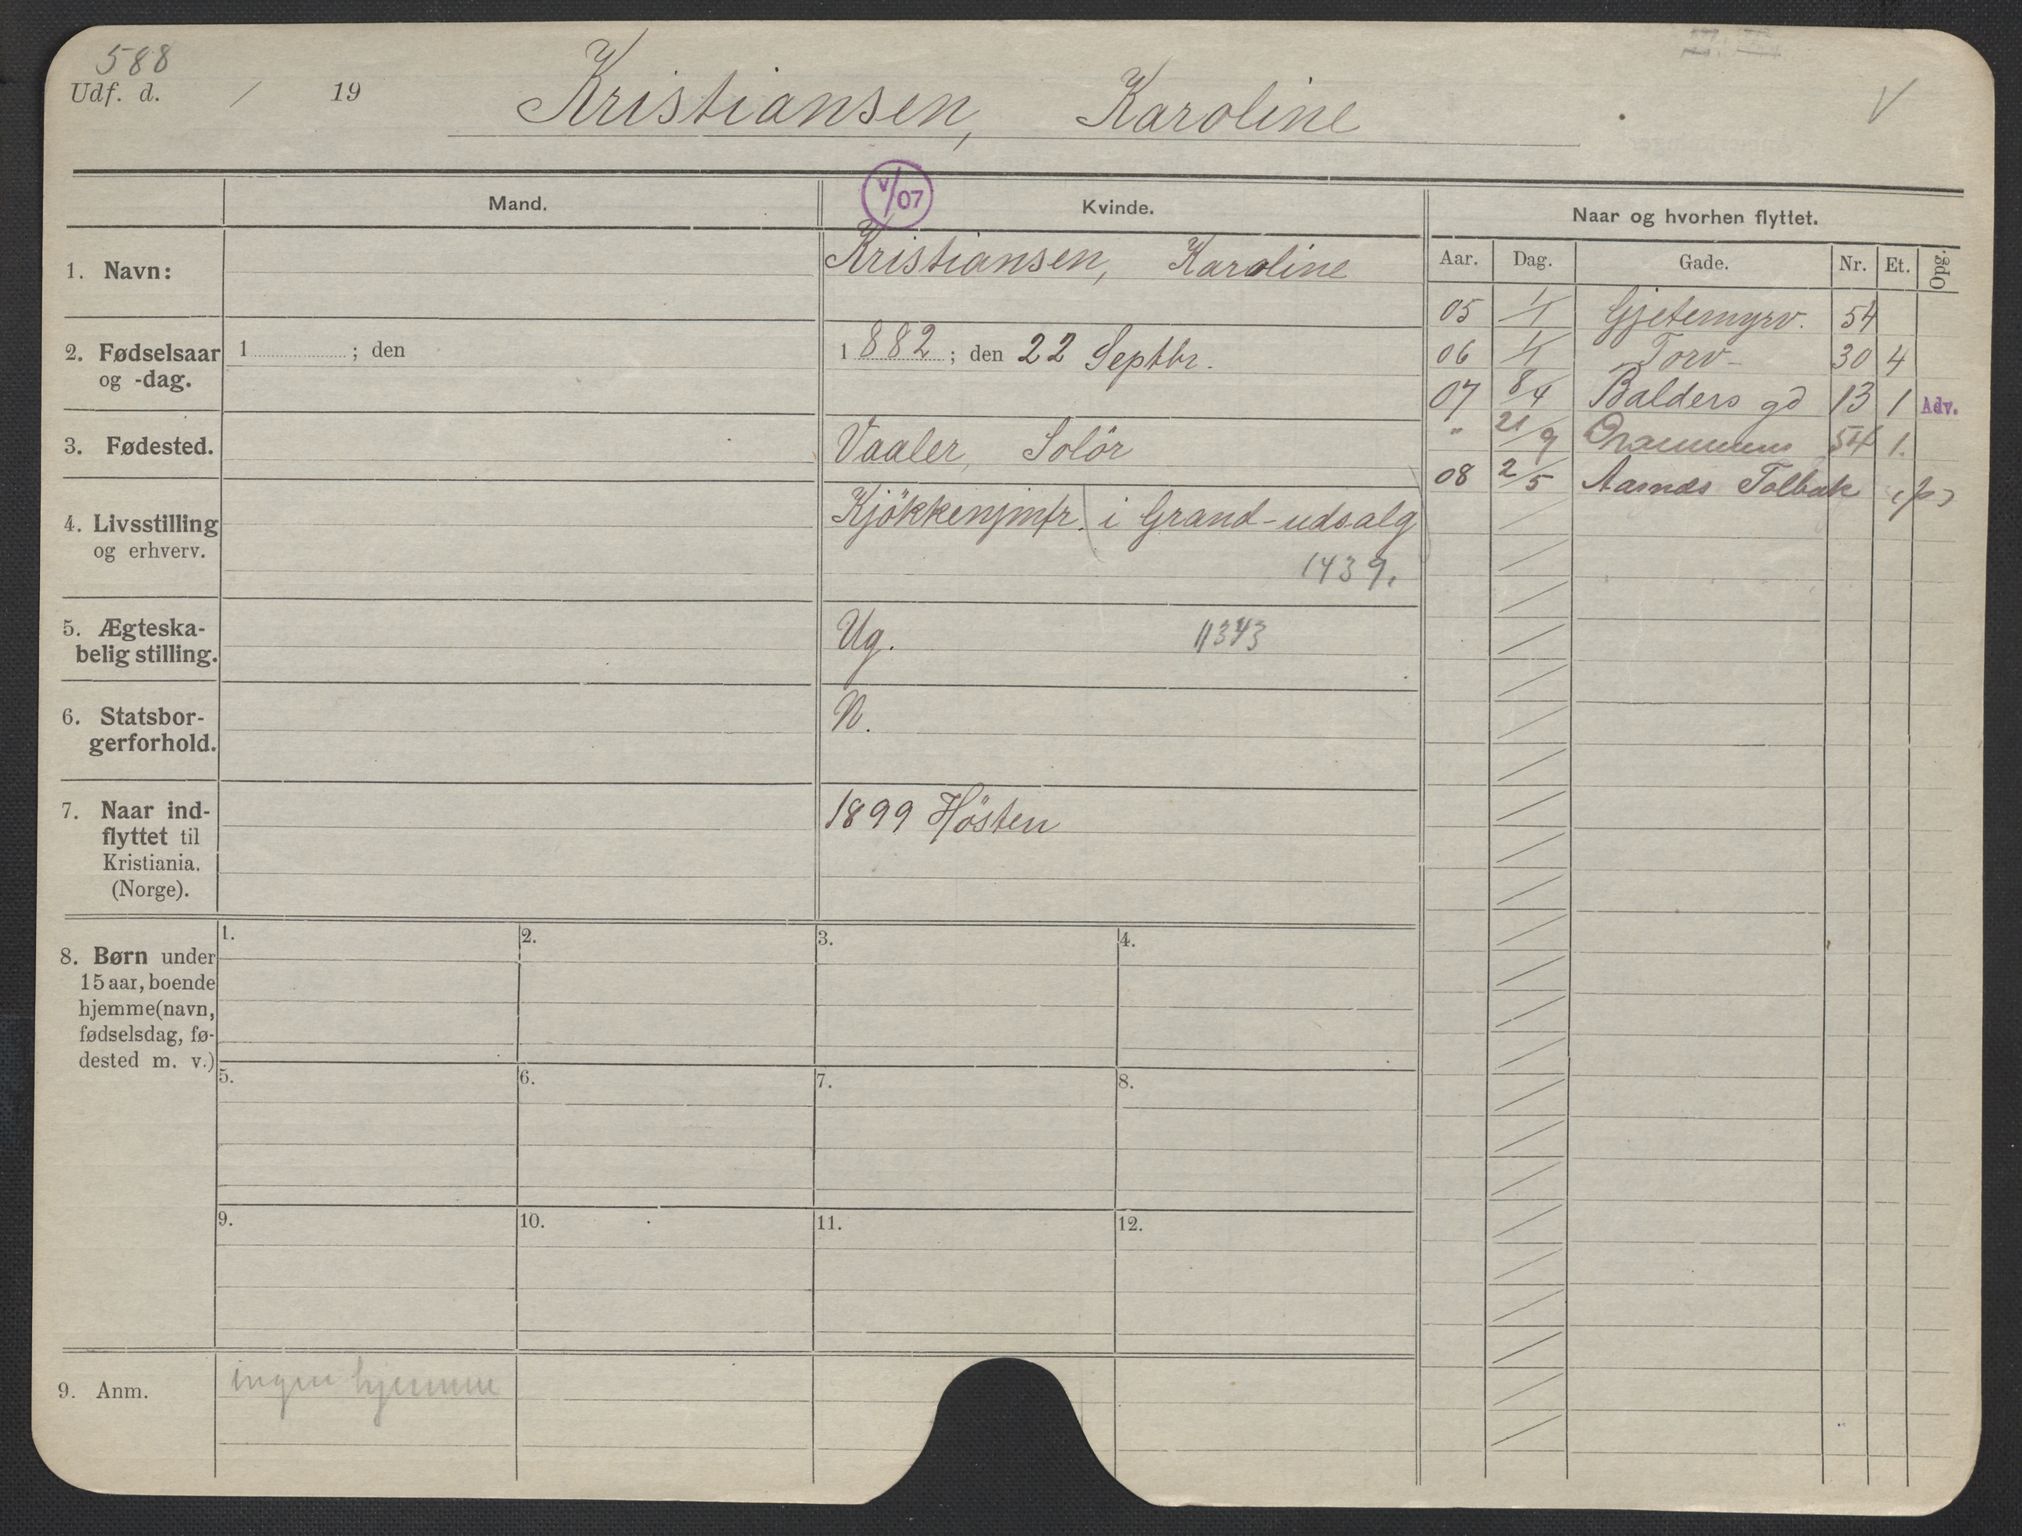 588
Udf. d. / 19
Kristiansen, Karoline
V
V/07
Mand.
Kvinde.
Naar og hvorhen flyttet.
Aar. Dag. Gade. Nr. Et. Opg.
1. Navn:
Kristiansen, Karoline
2. Fødselsaar og -dag.
1 ; den
1 882 ; den 22 Septbr.
3. Fødested.
Vaaler, Solör
4. Livsstilling og erhverv.
Kjökkenjmfr. i Grand-udsalg
1439.
5. Ægteska-
belig stilling.
Ug. 11343
6. Statsbor-
gerforhold.
N.
7. Naar ind-
flyttet til
Kristiania.
(Norge).
1899 Hösten
05 1/1 Gjetemyrv. 54
06 1/1 Torv- 30 4
07 8/4 Balders gd 13 1 Adv.
" 21/9 Drammens 54 1.
08 2/5 Aasnes Tolbak (p)
8. Børn under
15 aar, boende
hjemme (navn,
fødselsdag, fø-
dested m. v.)
1. 2. 3. 4.
5. 6. 7. 8.
9. 10. 11. 12.
9. Anm.
ingen hjemme